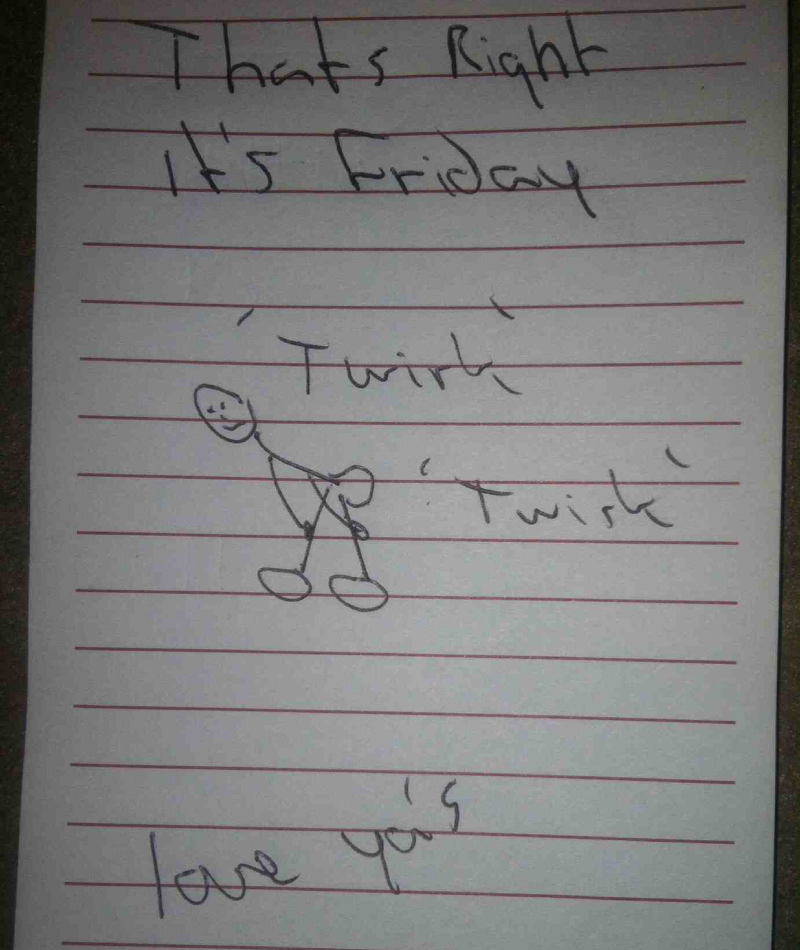 Thats Right
It's Friday
'Twirk'
'Twirk'
love ya's